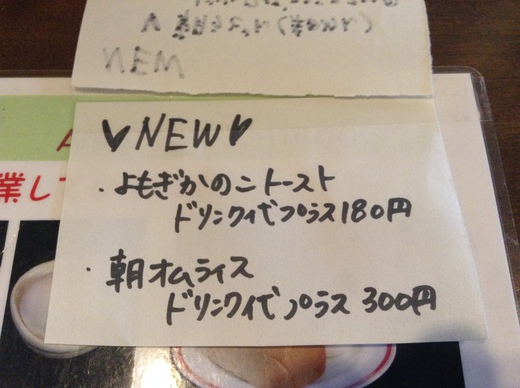 NEW
♥NEW♥
・よもぎかのこトースト
ドリンク代プラス180円
・朝オムライス
ドリンク代プラス300円
業して